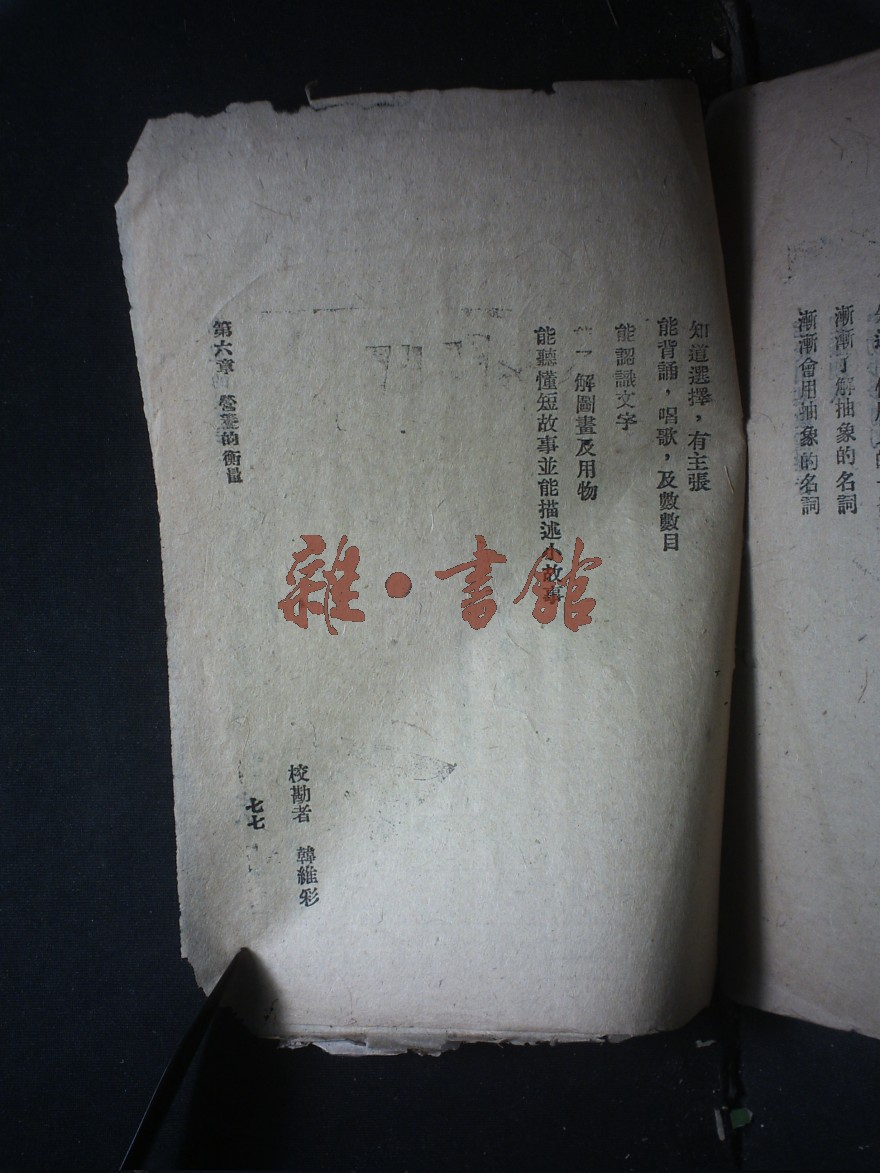 漸漸了解抽象的名詞
漸漸會用抽象的名詞
知道選擇，有主張
能背誦，唱歌，及數數目
能認識文字
解圖畫及用物
能聽懂短故事並能描述小故事
校勘者　韓維彩
第六章　營養的衡量
七七
雜·書館